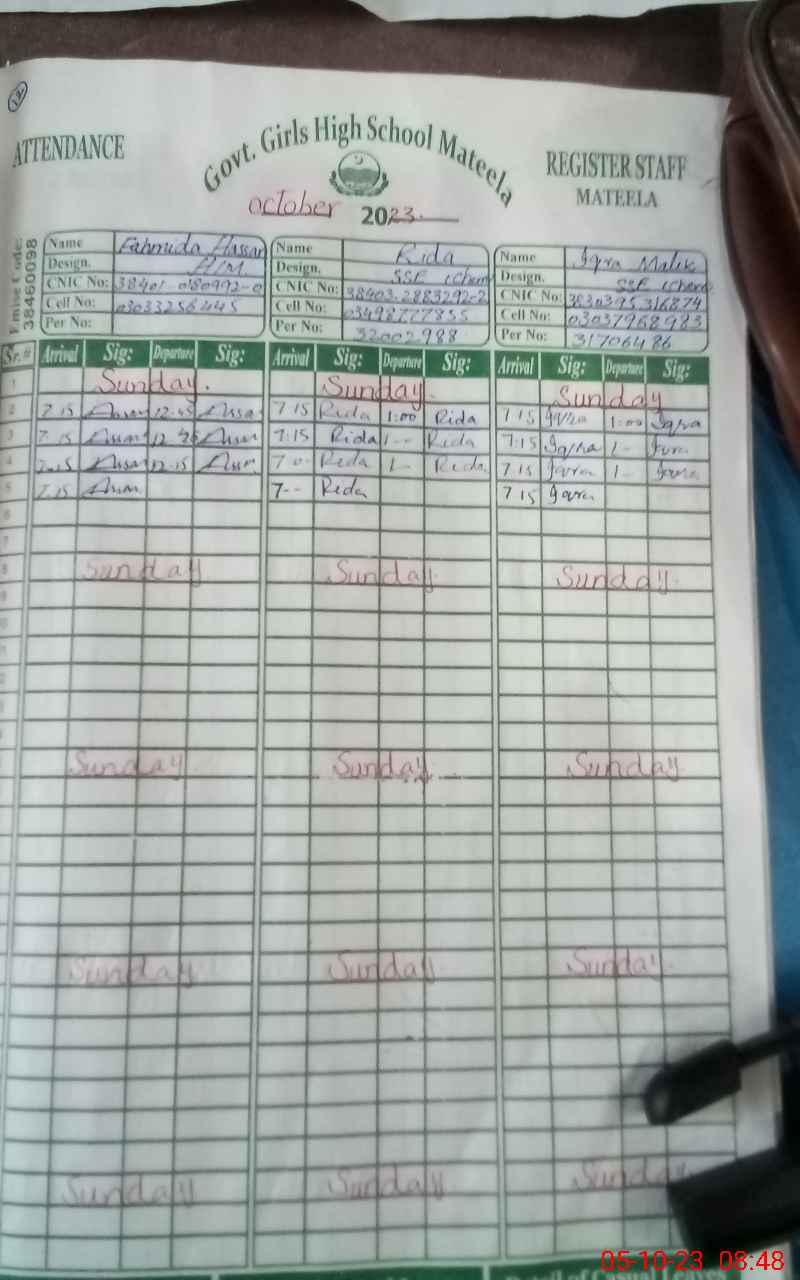 12
ATTENDANCE
Govt. Girls High School Mateela
REGISTER STAFF
MATEELA
october 2023
Emise Code: 38460098
Name Fahmida Hassan
Design. H/M
CNIC No: 38401-0180992-0
Cell No: 03033256445
Per No:
Name Rida
Design. SSE (Chem
CNIC No: 38403-2883292-2
Cell No: 03498777855
Per No: 32002988
Name Iqra Malik
Design. SSE (Chem
CNIC No: 3830395316874
Cell No: 03037968983
Per No: 31706486
Sr.# Arrival Sig: Departure Sig: Arrival Sig: Departure Sig: Arrival Sig: Departure Sig:
1 Sunday. Sunday. Sunday
2 7 15 12:45 7 15 Rida 1:00 Rida 7 15 Iqra 1:00 Iqra
3 7.15 12 45 7:15 Rida 1-- Rida 7:15 Iqra 1- Iqra
4 7.15 12.15 7 0- Rida 1- Rida 7.15 Iqra 1- Iqra
5 7.15 7-- Rida 7 15 Iqra
6
7
8 Sunday Sunday. Sunday.
9
Sunday Sunday Sunday
Sunday Sunday Sunday.
Sunday Sunday Sunday
05-10-23 08:48